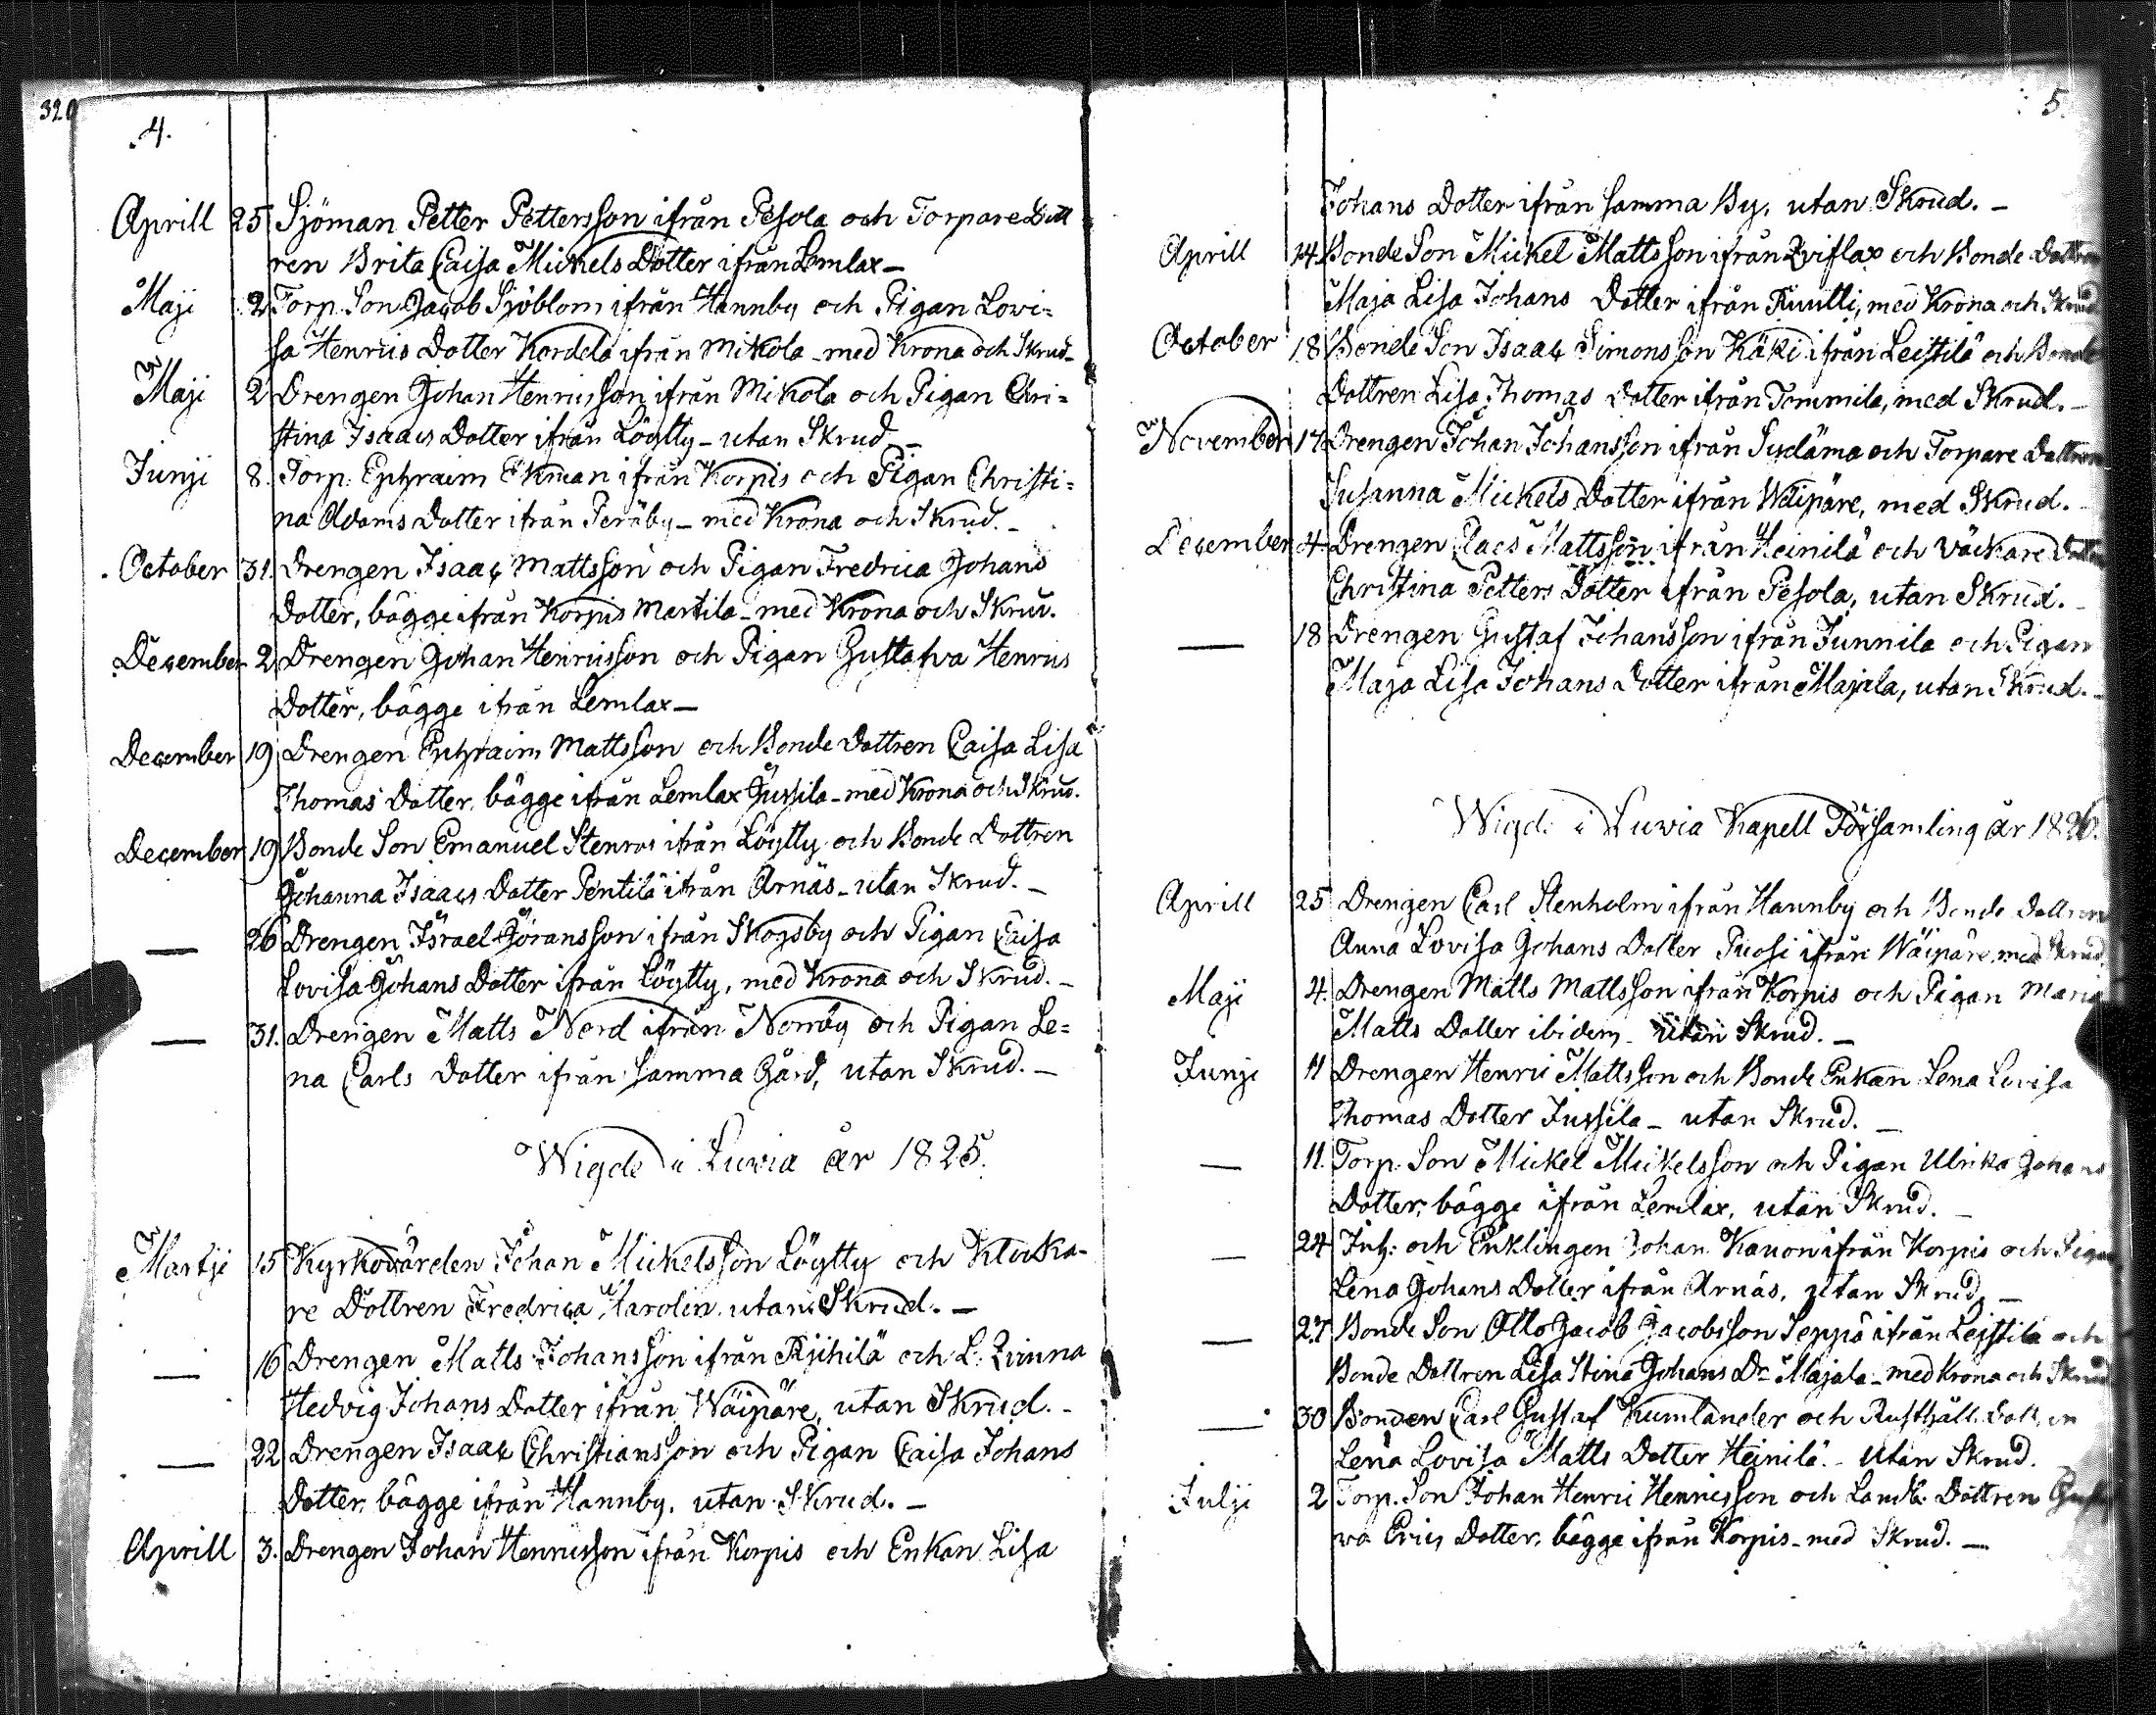 320
4.
Aprill 25 Sjöman Petter Pettersson ifrån Pesola och Torpare Dott
ren Brita Caisa Mickels Dotter ifrån Lemlax –
Maji 2 Torp. Son Jacob Sjöblom ifrån Hannby och Pigan Lovi=
sa Henrics Dotter Kordela ifrån Mikola – med Krona och Skrud –
Maji 2 Drengen Johan Henricsson ifrån Mikola och Pigan Chri=
stina Isaacs Dotter ifrån Löytty – utan Skrud –
Junji 8. Torp. Ephraim Ekman ifrån Korpis och Pigan Christi=
na Adams Dotter ifrån Peräby – med Krona och Skrud. –
October 31. Drengen Isaac Mattsson och Pigan Fredrica Johans
Dotter, bägge ifrån Korpis Martila – med Krona och Skrud.
December 2 Drengen Johan Henricsson och Pigan Gustafva Henrics
Dotter, bägge ifrån Lemlax –
December 19 Drengen Ephraim Mattsson och Bonde Dottren Caisa Lisa
Thomas Dotter, bägge ifrån Lemlax Jussila – med Krona och Skrud.
December 19 Bonde Son Emanuel Stenros ifrån Löytty och Bonde Dottren
Johanna Isaacs Dotter Pentilä ifrån Arnäs – utan Skrud. –
— 26 Drengen Israel Göransson ifrån Skogsby och Pigan Caisa
Lovisa Johans Dotter ifrån Löytty, med Krona och Skrud. –
— 31. Drengen Matts Nord ifrån Norrby och Pigan Le=
na Carls Dotter ifrån samma Gård, utan Skrud. –
Wigde i Luvia år 1825.
Martji 15 Kyrkovärden Johan Mickelsson Löytty och Klocka-
re Dottren Fredrica Harolin utan Skrud. –
— 16 Drengen Matts Johansson ifrån Rjihilä och L. Qvinna
Hedvig Johans Dotter ifrån Wäipäre, utan Skrud. –
— 22 Drengen Isaac Christiansson och Pigan Caisa Johans
Dotter, bägge ifrån Hannby, utan Skrud. –
Aprill 3. Drengen Johan Henricsson ifrån Korpis och Enkan Lisa
5.
Johans Dotter ifrån samma By, utan Skrud. –
Aprill 14 Bonde Son Mickel Mattsson ifrån Qviflax och Bonde Dottren
Maja Lisa Johans Dotter ifrån Ruutti, med Krona och Skrud
October 18 Bonde Son Isaac Simonsson Käki ifrån Leistilä och Bonde
Dottren Lisa Thomas Dotter ifrån Tommila, med Skrud. –
November 17 Drengen Johan Johansson ifrån Sydäma och Torpare Dottren
Susanna Mickels Dotter ifrån Wäipäre, med Skrud. –
December 4 Drengen Claes Mattsson ifrån Heinilä och Väckare Dottren
Christina Petters Dotter ifrån Pesola, utan Skrud. –
— 18 Drengen Gustaf Johansson ifrån Junnila och Pigan
Maja Lisa Johans Dotter ifrån Majala, utan Skrud. –
Wigde i Luvia Kapell Församling år 1826.
Aprill 25 Drengen Carl Stenholm ifrån Hannby och Bonde Dottren
Anna Lovisa Johans Dotter Puosi ifrån Wäipäre, med Skrud.
Maji 4. Drengen Matts Mattsson ifrån Korpis och Pigan Maria
Matts Dotter ibidem – utan Skrud. –
Junji 11 Drengen Henric Mattsson och Bonde Enkan Lena Lovisa
Thomas Dotter Jussila – utan Skrud. –
— 11. Torp. Son Mickel Mickelsson och Pigan Ulrika Johans
Dotter, bägge ifrån Lemlax, utan Skrud. –
— 24 Inh: och Enklingen Johan Kanon ifrån Korpis och Pigan
Lena Johans Dotter ifrån Arnäs, utan Skrud. –
— 27 Bonde Son Otto Jacob Jacobsson Seppä ifrån Leistilä och
Bonde Dottren Lisa Stina Johans Dr Majala – med Krona och Skrud
— 30 Bonden Carl Gustaf Kumlander och Rusthåll. Dottren
Lena Lovisa Matts Dotter Heinilä. – utan Skrud.
Julji 2 Torp. Son Johan Henric Henricsson och Landb. Dottren Gustaf
va Erics Dotter, bägge ifrån Korpis – med Skrud. –